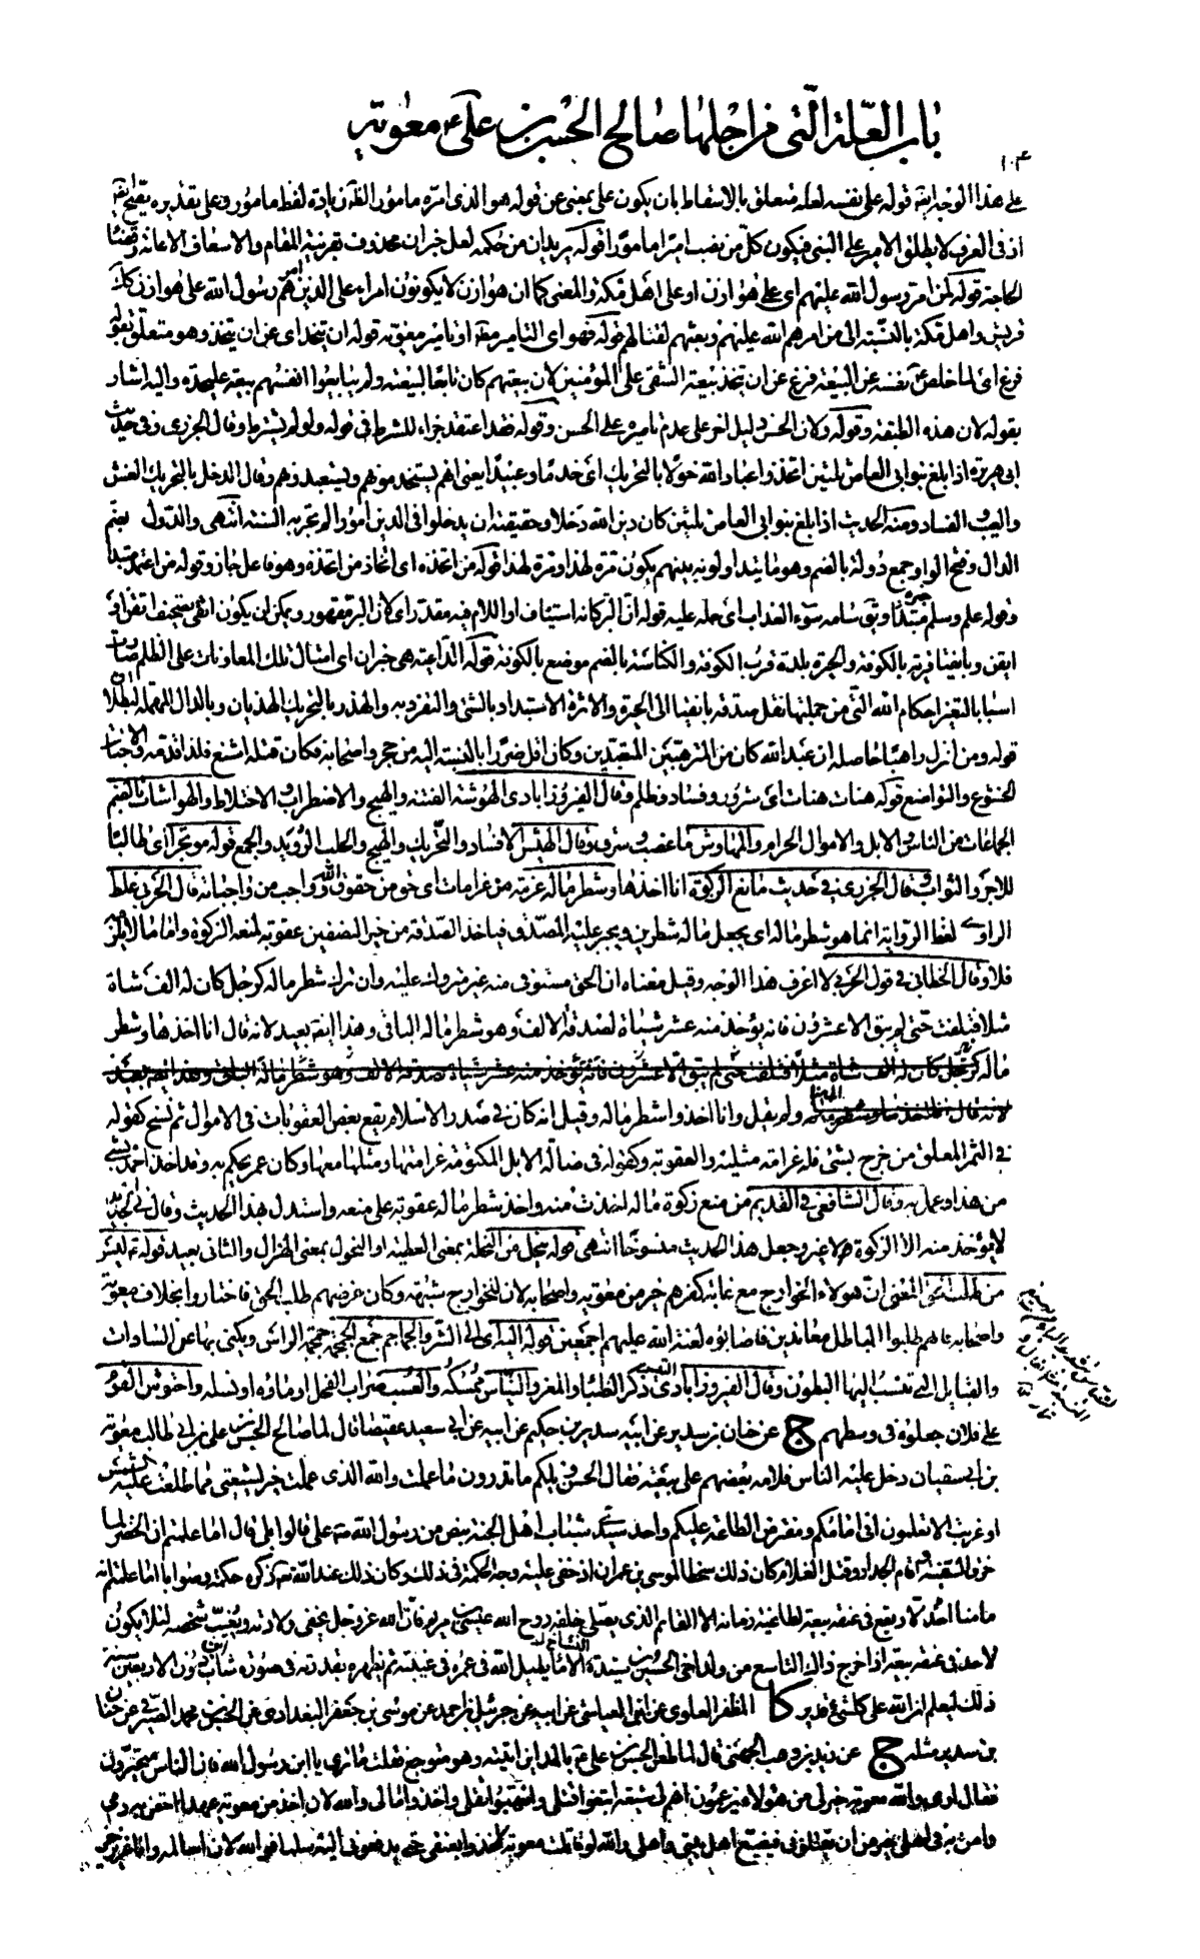 باب العلة التي من اجلها صالح الحسن بن علي ع معوية
١٠٤
على هذا الوجه ايضا قوله على نفسه لعله متعلق بالاسقاط بان يكون على بمعنى عن قوله هو الذى امره مامور الظ زيادة لفظ مامور وعلى تقديره يصح ايضا
اذ فى العرف لا يطلق الامير على النبى فيكون كل من نصب اميرا مامورا قوله يريدان من حكمه لعل خبر ان محذوف بقرينة المقام والاسعاف الاعانة وقضاء
الحاجة قوله لمن امره رسول الله عليهم اى على هوازن او على اهل مكة والمعنى كما ان هوازن لا يكونون امراء على الذين امر هم رسول الله على هوازن كك
قريش واهل مكة بالنسبة الى من امرهم الله عليهم وبعثهم لقتالهم قوله فهو اى التامير
فرغ اى لما خلص ع نفسه عن البيعة فرغ عن ان يتخذ بيعة الشقى على المؤمنين لان بيعتهم كان تابعا لبيعته ولم يبايعوا انفسهم بيعة عليحدة واليه اشار
بقوله لان هذه الطبقة وقوله ولان الحسن دليل اخر على عدم تاميره على الحسن وقوله فقد اعتقد جزاء للشرط فى قوله ولو لم يشترط وقال الجزرى وفى حديث
ابى هريرة اذا بلغ بنو ابى العاص ثلثين اتخذوا عباد الله خولا بالتحريك اى خدما وعبيدا يعنى انهم يستخدمونهم ويستعبدونهم وقال الدخل بالتحريك الغش
والعيب والفساد ومنه الحديث اذا بلغ بنو ابى العاص ثلثين كان دين الله دخلا وحقيقته ان يدخلوا فى الدين امورا لم تجر به السنة انتهى والدول بضم
الدال وفتح الواو جمع دولة بالضم وهو ما يتداولونه بينهم يكون مرة لهذا ومرة لهذا قوله من اتخذه اى اتخاذ من اتخذه وهو فاعل جاز وقوله من اعتمد مبتدا
وقوله علم وسلم خبره مبتدا ويق سامه سوء العذاب اى حمله عليه قوله ان البركانه استيناف او اللام فيه مقدر اى لان البر مقهور ويمكن ان يكون اتقى بتصحيف اتقن اى
ايقن وبانقيا قرية بالكوفة والحيرة بلدة قرب الكوفة والكناسة بالضم موضع بالكوفة قوله الداعية هى خبر ان اى امثال تلك المعاونات على الظلم صارت
اسبابا لتغير احكام الله التى من جملتها نقل صدقة بانقيا الى الحيرة والاثرة الاستبداد بالشئ والتفرد به والهذر بالتحريك الهذيان وبالدال المهملة البطلان
قوله ومن انزل راهبا حاصله ان عبد الله كان من المترهبين المتعبدين وكان اقل ضررا بالنسبة اليه من حجر واصحابه فكان قتله اشنع فلذا قدمه والاخبات
الخشوع والتواضع قوله هنات هنات اى شرور وفساد وظلم وقال الفيروزابادى الهوشة الفتنة والهيج والاضطراب والاختلاط والهواشات بالضم
الجماعات من الناس والابل والاموال الحرام والمهاوش ما غصب وسرق وقال الهيش الافساد والتحريك والهيج والحلب الرويد والجمع قوله موتجرا اى طالبا
للاجر والثواب وقال الجزرى فى حديث مانع الزكوة انا اخذها وشطر ماله عزمة من عزمات الله اى حق من حقوق الله وواجب من واجباته قال الحربى غلط
الراوى لفظ الرواية انما هو شطر ماله اى يجعل ماله شطرين ويتخير عليه المصدق فياخذ الصدقة من خير النصفين عقوبة لمنعه الزكوة واما ما لا يلزمه
فلا وقال الخطابى فى قول الحربى لا اعرف هذا الوجه وقيل معناه ان الحق مستوفى منه غير متروك عليه وان ترك شطر ماله كرجل كان له الف شاة
مثلا فتلفت حتى لم يبق الا عشرون فانه يؤخذ منه عشر شياة لصدقة الالف وهو شطر ماله الباقى وهذا ايضا بعيد لانه قال انا اخذها وشطر
ماله كرجل كان له الف شاة مثلا فتلفت حتى لم يبق الا عشرون فانه يؤخذ منه عشر شياة لصدقة الالف وهو شطر ماله الباقى وهذا ايضا بعيد
لانه قال انا اخذها وشطر ماله ولم يقل وانا اخذوا شطر ماله وقيل انه كان فى صدر الاسلام يقع بعض العقوبات فى الاموال ثم نسخ كقوله
فى الثمر المعلق من خرج بشئ فله غرامة مثليه والعقوبة وكقوله فى ضالة الابل المكتومة غرامتها ومثلها معها وكان عمر يحكم به وقد اخذ احمد بشئ
من هذا وعمل به وقال الشافعى فى القديم من منع زكوة ماله اخذت منه واخذ شطر ماله عقوبة على منعه واستدل بهذا الحديث وقال فى الجديد
لا يؤخذ منه الا الزكوة لا غير وجعل هذا الحديث منسوخا انتهى قوله ينحل من النحلة بمعنى العطية او النحول بمعنى الهزال والثانى بعيد قوله ع ليس
من طلب الحق المعنى ان هولاء الخوارج مع غاية كفرهم خير من معوية واصحابه لان للخوارج شبهة وكان غرضهم طلب الحق فاخطاوا بخلاف معوية
واصحابه فانهم طلبوا الباطل معاندين فاصابوه لعنة الله عليهم اجمعين قوله السرى الشر والجماجم جمع الجمجمة جمجمة الراس ويكنى بها عن السادات
والقبايل التى تنسب اليها البطون وقال الفيروزابادى ذكر الظباء والمعز والتياس ممسكه والعسب ضراب الفحل او ماؤه او نسله واحتوش القوم
على فلان جعلوه فى وسطهم ج عن حنان بن سدير عن ابيه سدير بن حكيم عن ابيه عن ابى سعيد عقيصا قال لما صالح الحسن بن على بن ابى طالب معوية
بن ابى سفيان دخل عليه الناس فلامه بعضهم على بيعته فقال الحسن ويلكم ما تدرون ما عملت والله الذى عملت خير لشيعتى مما طلعت عليه الشمس
او غربت الا تعلمون انى امامكم ومفترض الطاعة عليكم واحد سيدى شباب اهل الجنة بنص من رسول الله ص على قالوا بلى قال اما علمتم ان الخضر لما
خرق السفينة واقام الجدار وقتل الغلام كان ذلك سخطا لموسى بن عمران اذ خفى عليه وجه الحكمة فى ذلك وكان ذلك عند الله تع ذكره حكمة وصوابا اما علمتم انه
ما منا احد الا ويقع فى عنقه بيعة لطاغية زمانه الا القائم الذى يصلى خلفه روح الله عيسى بن مريم فان الله عز وجل يخفى ولادته ويغيب شخصه لئلا يكون
لاحد فى عنقه بيعة اذا خرج ذاك التاسع من ولد اخى الحسين ابن سيدة الاماء يطيل الله فى عمره فى غيبته ثم يظهره بقدرته فى صورة شاب دون الاربعين سنة
ذلك ليعلم ان الله على كل شئ قدير كا المظفر العلوى عن ابن العياشى عن ابيه عن جبرئيل بن احمد عن موسى بن جعفر البغدادى عن الحسن بن محمد الصيرفى عن حنان
بن سدير مثله ج عن زيد بن وهب الجهنى قال لما طعن الحسن بن على ع بالمداين اتيته وهو متوجع فقلت ما ترى يا ابن رسول الله فان الناس متحيرون
فقال ارى والله معوية خير لى من هؤلاء يزعمون انهم لى شيعة ابتغوا قتلى وانتهبوا ثقلى واخذوا مالى والله لان اخذ من معوية عهدا احقن به دمى
وامن به فى اهلى خير من ان يقتلونى فيضيع اهل بيتى واهلى والله لو قاتلت معوية لاخذوا بعنقى حتى يدفعونى اليه سلما فو الله لان اسالمه وانا عزيز خير